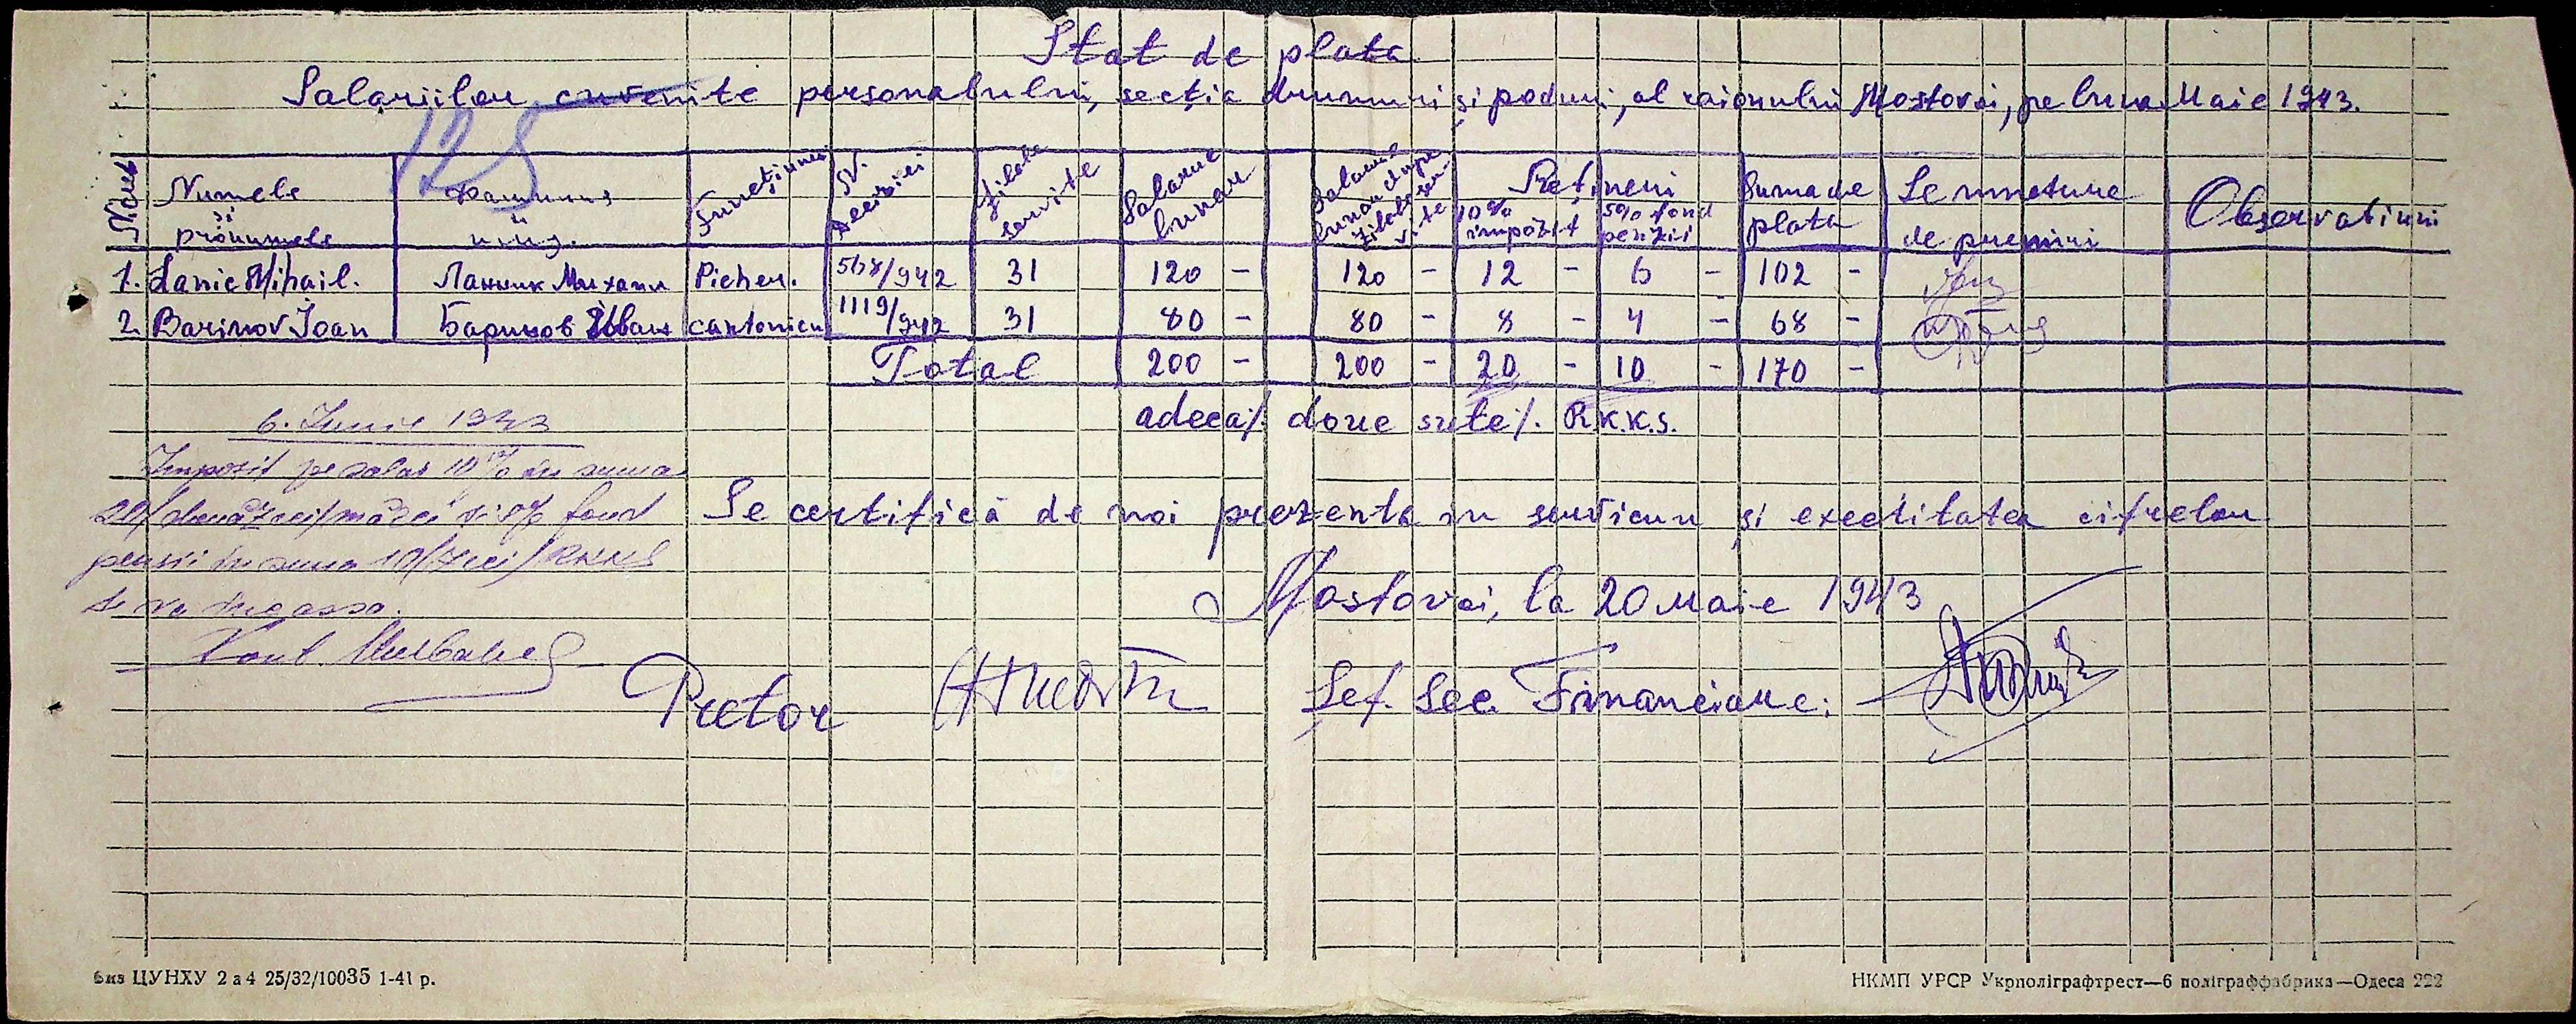 Stat de plata
Salariilor cuvenite personalului, secția drumuri și poduri, al raionului Mostovoi, pe luna Maie 1943.
128
Numele și pronumele Фамилия и имя Funcțiunea Nr. deciziei Zilele servite Salariu lunar Salariu lunar dupe zilele servite Rețineri 10% impozit 5% fond penzii Suma de plata Semnature de primiri Observatiuni
1. Lanic Mihail. Ланник Михаил Picher. 568/942 31 120 - 120 - 12 - 6 - 102 -
2. Barinov Ioan Баринов Иван cantonier 1119/942 31 80 - 80 - 8 - 4 - 68 -
Total 200 - 200 - 20 - 10 - 170 -
adeca/. doue sute/. R.K.K.S.
6. Iunie 1943
Impozit pe salar 10% in suma
20/douăzeci/mărci și 5% fond
pensii in suma 10/zeci/RKKS
se va incassa.
Se certifică de noi prezenta in serviciu și exectitatea cifrelor
Mostovoi, la 20 Maie 1943
Cont.
Pretor
Șef. Sec. Financiare:
биз ЦУНХУ 2 а 4 25/32/10035 1-41 р.
НКМП УРСР Укрполіграфтрест—6 поліграффабрика—Одеса 222